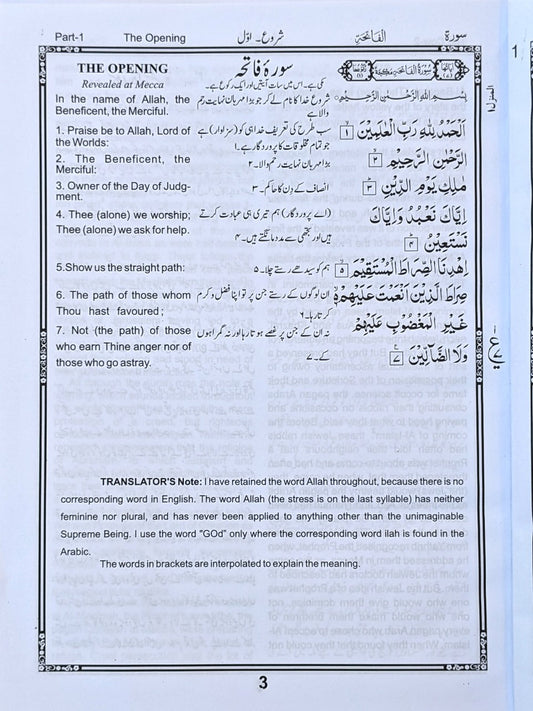 Part-1 The Opening شروع۔ اوّل الفاتحۃ سورۃ
1
THE OPENING
Revealed at Mecca
In the name of Allah, the
Beneficent, the Merciful.
1. Praise be to Allah, Lord of
the Worlds:
2. The Beneficent, the
Merciful:
3. Owner of the Day of Judg-
ment.
4. Thee (alone) we worship;
Thee (alone) we ask for help.
5.Show us the straight path:
6. The path of those whom
Thou hast favoured ;
7. Not (the path) of those
who earn Thine anger nor of
those who go astray.
سورۂ فاتحہ
مکی ہے۔ اس میں سات آیتیں اور ایک رکوع ہے۔
شروع خدا کا نام لے کر جو بڑا مہربان نہایت رحم
والا ہے
سب طرح کی تعریف خدا ہی کو (سزاوار) ہے
جو تمام مخلوقات کا پروردگار ہے۔۱
بڑا مہربان نہایت رحم والا۔۲
انصاف کے دن کا حاکم۔۳
(اے پروردگار) ہم تیری ہی عبادت کرتے
ہیں اور تجھی سے مدد مانگتے ہیں۔۴
ہم کو سیدھے رستے چلا۔۵
ان لوگوں کے رستے جن پر تو اپنا فضل و کرم
کرتا رہا۔۶
نہ ان کے جن پر غصے ہوتا رہا اور نہ گمراہوں
کے۔۷
سُوْرَةُ الْفَاتِحَةِ مَكِّيَّةٌ
بِسْمِ اللهِ الرَّحْمٰنِ الرَّحِيْمِ
اَلْحَمْدُ لِلّٰهِ رَبِّ الْعٰلَمِيْنَ ١
الرَّحْمٰنِ الرَّحِيْمِ ٢
مٰلِكِ يَوْمِ الدِّيْنِ ٣
اِيَّاكَ نَعْبُدُ وَاِيَّاكَ
نَسْتَعِيْنُ ٤
اِهْدِنَا الصِّرَاطَ الْمُسْتَقِيْمَ ٥
صِرَاطَ الَّذِيْنَ اَنْعَمْتَ عَلَيْهِمْ ٦
غَيْرِ الْمَغْضُوْبِ عَلَيْهِمْ
وَلَا الضَّآلِّيْنَ ٧
المنزل ١
TRANSLATOR'S Note: I have retained the word Allah throughout, because there is no
corresponding word in English. The word Allah (the stress is on the last syllable) has neither
feminine nor plural, and has never been applied to anything other than the unimaginable
Supreme Being. I use the word "GOd" only where the corresponding word ilah is found in the
Arabic.
The words in brackets are interpolated to explain the meaning.
3